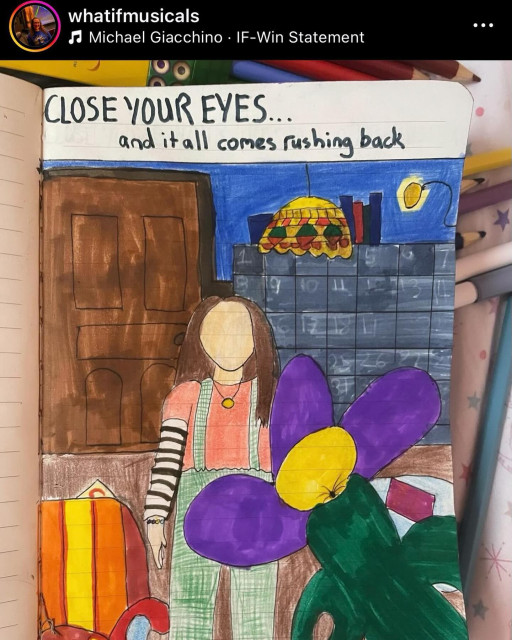 whatifmusicals
Michael Giacchino · IF-Win Statement
CLOSE YOUR EYES...
and it all comes rushing back